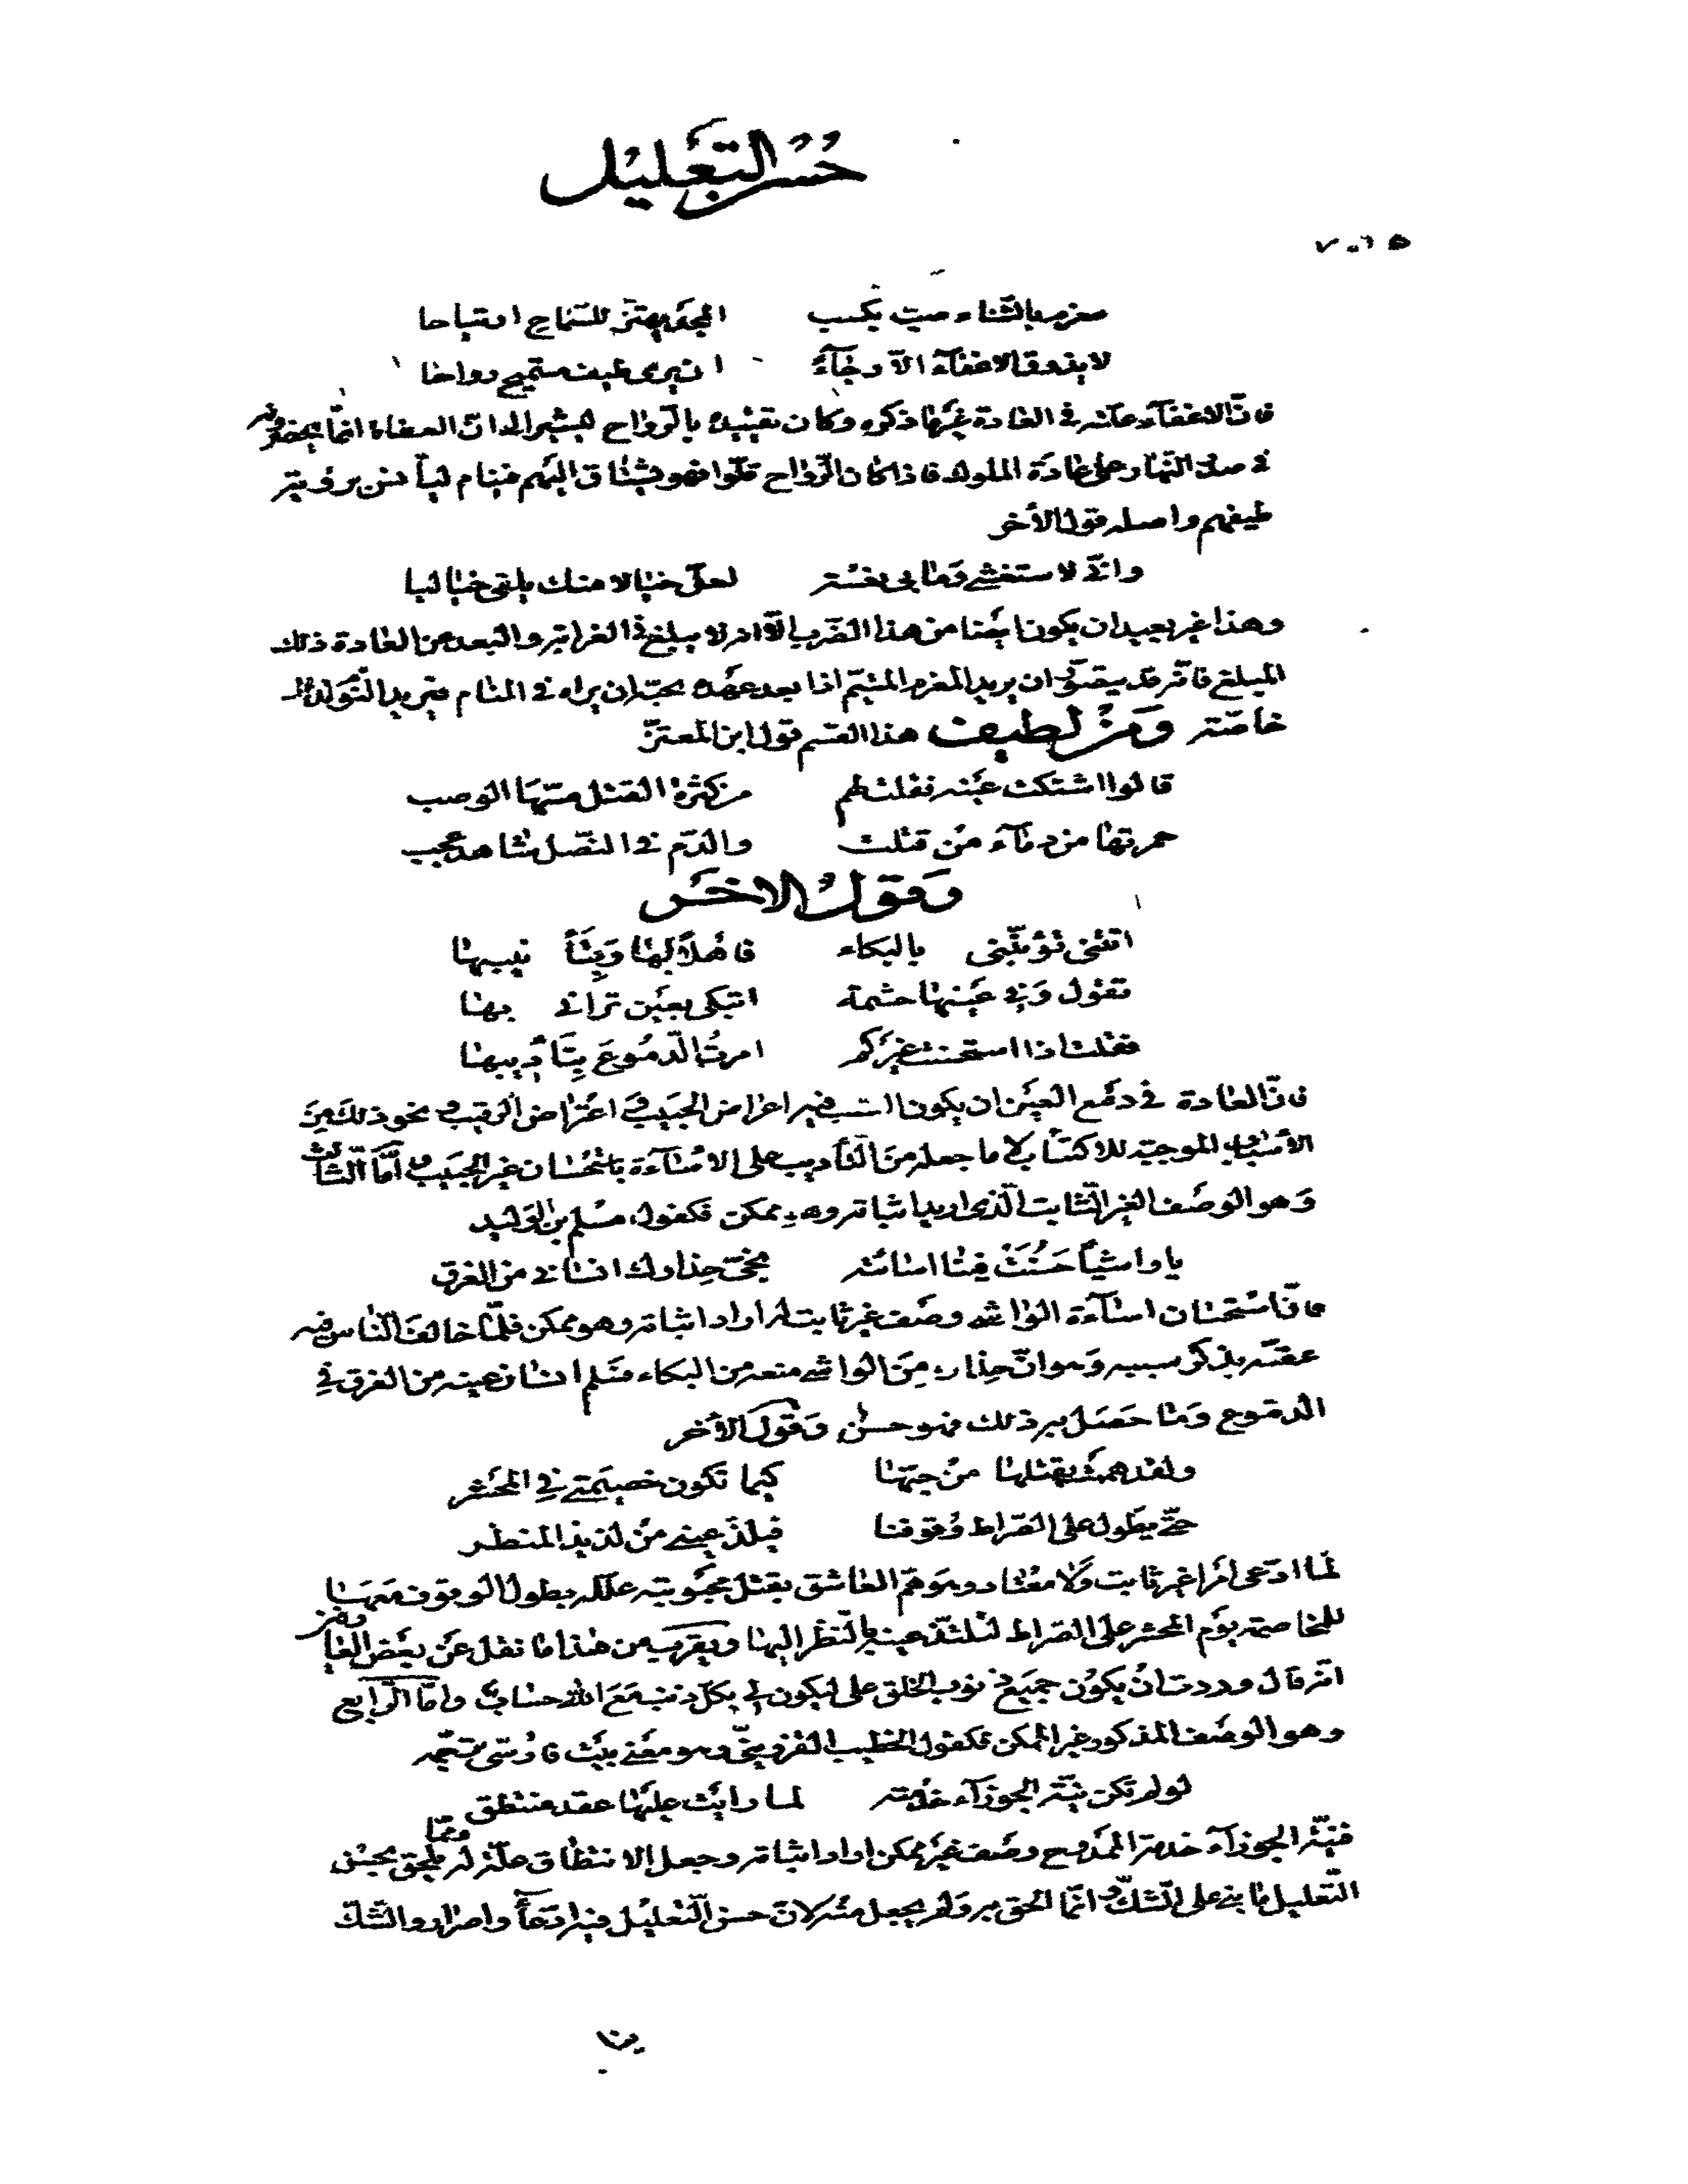 حُسْنُ التَّعْلِيْل
مغرم بالثناء صب بكسب المجد يهتز للسماح ارتياحا
لا يذوق الاغفاء الا رجاء ان يرى طيف مستميح رواحا
فان الاغفاء علته في العادة غيرها ذكره وكان تقييده بالرواح ليشير الى ان العفاة انما يحضرونه
في صدر النهار على عادة الملوك فاذا كان الرواح قلوا فهو يشتاق اليهم فينام ليأنس برؤية
طيفهم واصله قول الآخر
وانى لاستغشى وما بى نعسة لعل خيالا منك يلقى خياليا
وهذا غير بعيد ان يكون ايضا من هذا الضرب الا انه لا يبلغ في الغرابة والبعد عن العادة ذلك
المبلغ فانه قد يتصور ان يريد المغرم المتيم اذا بعد عهده بحبيبه ان يراه في المنام فيريد النوم لذلك
خاصة ومن لطيف هذا القسم قول ابن المعتز
قالوا اشتكت عينه فقلت لهم من كثرة القتل مسها الوصب
حمرتها من دماء من قتلت والدم في النصل شاهد عجب
وقول الاخر
اتتنى تؤنبنى بالبكاء فاهلا بها وبتأنيبها
تقول وفي عينها حشمة اتبكى بعين ترانى بها
فقلت اذا استحسنت غيركم امرت الدموع بتأديبها
فان العادة في دمع العين ان يكون السبب فيه اعراض الحبيب او اعتراض الرقيب ونحو ذلك من
الأسباب الموجبة للاكتئاب لا ما جعله من التأديب على الاساءة باستحسان غير الحبيب واما الثالث
وهو الوصف الغير الثابت الذى اريد اثباته وهو ممكن فكقول مسلم بن الوليد
يا واشيا حسنت فينا اسائته نجى حذارك انسانى من الغرق
فان استحسان اساءة الواشى وصف غير ثابت له اراد اثباته وهو ممكن فلما خالف الناس فيه
عقبه بذكر سببه وهو ان حذاره من الواشى منعه من البكاء فسلم انسان عينه من الغرق في
الدموع وما حصل به ذلك فهو حسن وقول الآخر
ولقد هممت بقتلها من حبها كيما تكون خصيمتى في المحشر
حتى يطول على الصراط وقوفنا فيلذ عينى من لذيذ المنظر
لما ادعى امرا غير ثابت ولا معتاد وهو هم العاشق بقتل محبوبته علله بطول الوقوف معها
للمخاصمة يوم المحشر على الصراط لتلتذ عينه بالنظر اليها ويقرب من هذا ما نقل عن بعض العارفين
انه قال وددت ان يكون جميع ذنوب الخلق على ليكون لى بكل ذنب مع الله حساب واما الرابع
وهو الوصف المذكور غير الممكن فكقول الخطيب القزوينى وهو معنى بيت فارسى ترجمه
لو لم تكن نية الجوزاء خدمته لما رايت عليها عقد منتطق
فنية الجوزاء خدمة الممدوح وصف غير ممكن اراد اثباته وجعل الانتطاق علة له ومما يلحق بحسن
التعليل ما بنى على الشك وانما الحق به ولم يجعل منه لان حسن التعليل فيه ادعاء واصرار والشك